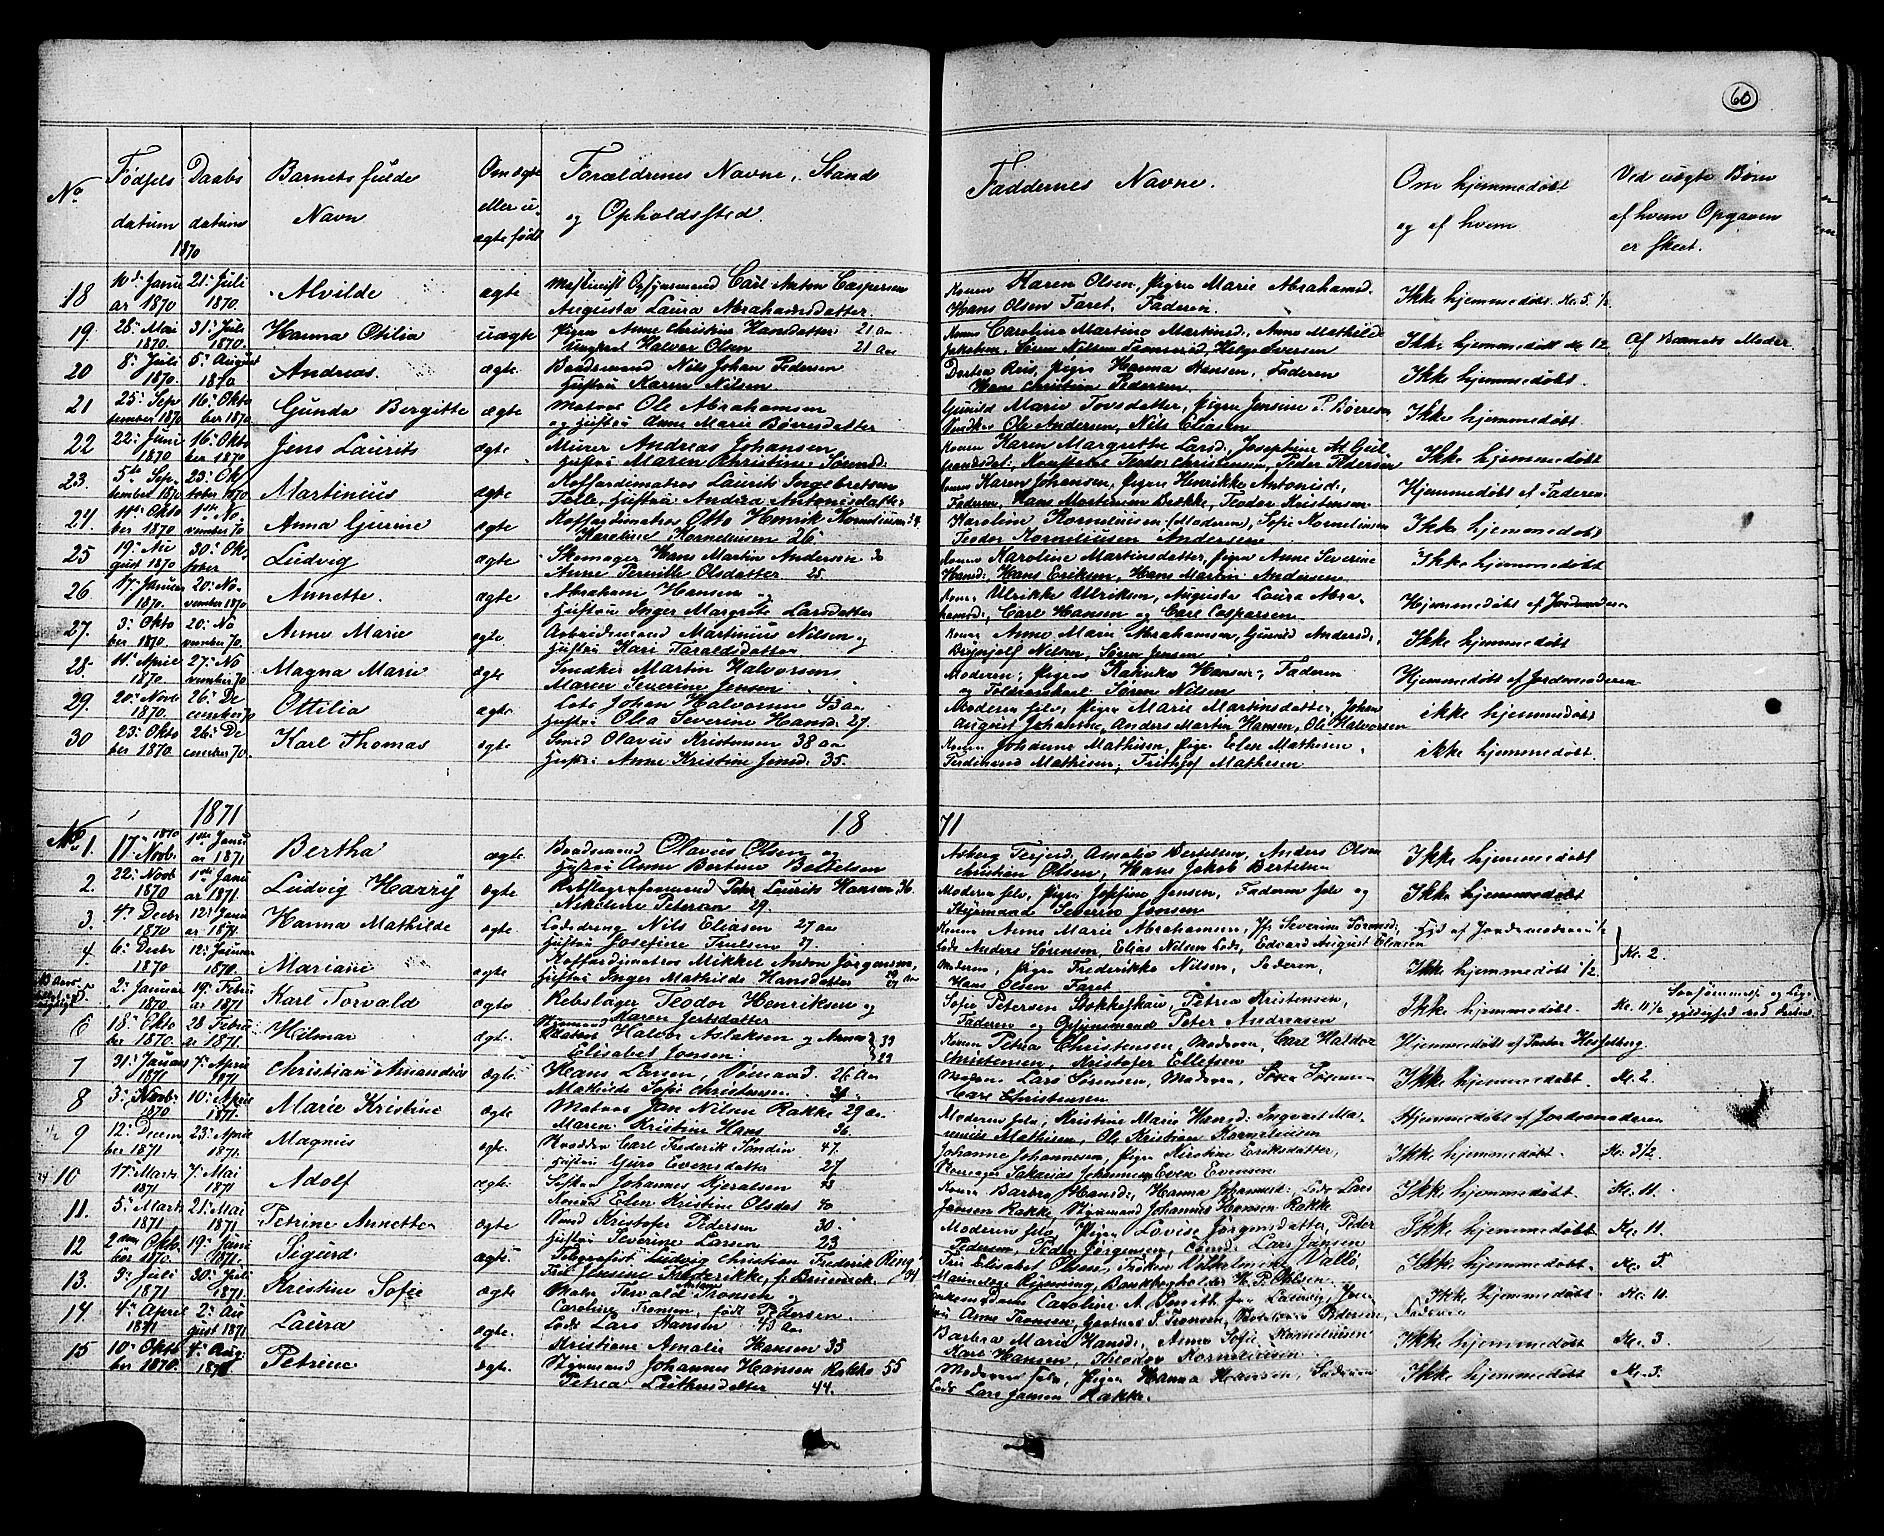 60
No
Fødsels datum
Daabs datum
1870
Barnets fulde Navn
Om ægte eller uægte født
Forældrenes Navne, Stand og Opholdssted.
Faddernes Navne.
Om hjemmedøbt og af hvem
Ved uægte Børn af hvem Opgaven er skeet.
18 10de Januar 1870 21. Juli 1870. Alvilde ægte Opsynsmand Carl Anton Caspersen
Augusta Laura Abrahamsdatter.
Konen Karen Olsen, Pigen Marie Abrahamsd.
Hans Olsen Faret, Faderen.
Ikke hjemmedøbt. Kl. 5 1/2
19. 28. Mai 1870. 31. Juli 1870. Hanna Otilia uægte Pigen Anne Christine Hansdatter 21 Aar
Ungkarl Halvor Olsen 21 Aar
Konen Caroline Martine Martinsd., Anne Mathilde
Jakobsen, Søren Nilsen, Helge Iversen
Ikke hjemmedøbt Kl. 12 Af Barnets Moder.
20 8. Juli 1870. 5. August 1870 Andreas. ægte. Baadsmand Nils Johan Pedersen
Hustru Karen Nilsen
Dortea Reis, Pigen Hanna Hansen, Faderen
Hans Christian Pedersen.
Ikke hjemmedøbt.
21 25. September 1870 16. Oktober 1870. Gunda Bergitte ægte. Matros Ole Abrahamsen
og Hustru Anne Marie Børresdatter
Gunild Marie Tovsdatter, Pigen Jensine P. Børresen
Snedker Ole Andersen, Nils Eliasen
Ikke hjemmedøbt
22 22. Juni 1870 16. Oktober 1870. Jens Laurits ægte Murer Andreas Johansen
Hustru Maren Christine
Konen Karen Margrethe Larsd., Josephine
Teodor Christensen, Peder Pedersen
Ikke hjemmedøbt
23. 5te September 1870 23. Oktober 1870 Martinius ægte Koffardimatros Laurits Ingebretsen
Hustru Andrea Antonisdatter
Konen Karen Johansen, Pigen Henrikke Antonisd.
Faderen, Hans Martinsen Bekke, Teodor Kristensen.
Hjemmedøbt af Faderen.
24. 1ste Oktober 1870 1ste November 70 Anna Gurine ægte Koffardimatros Otto Henrik Korneliusen 34.
Karoline Korneliusen 26
Karoline Korneliusen (Moderen), Sofie Korneliusen
Teodor Korneliusen Andersen
Ikke hjemmedøbt
25 19. August 1870 30. Oktober Ludvig ægte Skomager Hans Martin Andersen 30
Anne Pernille Olsdatter 25.
Konen Karoline Martinsdatter, Pigen Anne Severine
Hansd., Hans Eriksen, Hans Martin Andersen
Ikke hjemmedøbt
26 17. Januar 1870. 20. November 1870 Annette. ægte Abraham Hansen og
Hustru Inger Margrete Larsdatter
Konen Ulrikke Ulriksen, Augusta Laura Abrahamsd., Carl Hansen og Carl Caspersen
Hjemmedøbt af Jordmoderen
27. 3. Oktober 1870 20. November 70. Anne Marie ægte. Arbeidsmand Martinius Nilsen og
Hustru Kari Taraldsdatter
Konen Anne Marie Abrahamsen, Gunild Andersd.,
Brynjolf Nilsen, Søren Jensen
Ikke hjemmedøbt
28. 11. April 1870 27. November 70. Magna Marie ægte Snedker Martin Halvorsen
Maren Severine Jensen
Moderen, Pigen Hansen, Faderen
og Søren Nilsen
Hjemmedøbt af Jordemoderen
29. 20. Novb 1870. 26. December 70 Ottilia ægte. Lods Johan Halvorsen 43 Aar
Hustru Olia Severine Hansd. 27.
Moderen selv, Pigen Marie Martinsdatter, Johan
August Johansen, Anders Martin Hansen, Ole Halvorsen
ikke hjemmedøbt
30 23. Oktober 1870. 26. December 70. Karl Thomas ægte Smed Olavus Kristensen 38 Aar
Hustru Anne Kristine Jensd. 35.
Konen Johanne Mathisen, Pigen Elen Mathisen,
Ferdinand Mathisen, Frithjof Mathisen
ikke hjemmedøbt.
1871
1871
No 1. 17. Novb. 1870 1ste Januar 1871 Bertha ægte. Baadsmand Olavus Olsen og
Hustru Anne Bertine Bertelsen
Asberg Terjesd., Amalie Bertelsen, Anders Olsen
Christian Olsen, Hans Jakob Bertelsen
Ikke hjemmedøbt
2. 22. Novb 1870 1ste Januar 1871. Ludvig Harry ægte Rebslagerformand Peter Laurits Hansen 36.
Nikoline Petersen 29.
Moderen selv, Pigen Josefine Jensen, Faderen selv og
Styrmand Severin Jensen
Ikke hjemmedøbt
3. 4. Decbr 1870 12. Januar 1871. Hanna Mathilde ægte Lodsdreng Nils Eliasen 27 Aar
Hustru Josefine Truelsen 27.
Konen Anne Marie Abrahamsen, Jfr Severine Sørensd.,
Lods Anders Sørensen, Elias Nilsen Lods, Edvard August Eliasen
Kl. 2
4. 6. Decbr 1870 12. Januar 1870. Mariane ægte Koffardimatros Mikkel Anton Jørgensen, 29
Hustru Inger Mathilde Hansdatter 27 Aar
Moderen, Pigen Frederikke Nilsen, Faderen,
Hans Olsen Faret
Ikke hjemmedøbt 1/2
5. 2. Januar 1870. 19. Februar 1871 Karl Torvald ægte Rebslager Teodor Henriksen og
Maren Gertsdatter
Sofie Petersen Stokkeskau, Petrea Kristensen,
Faderen og Opsynsmand Peter Andreasen
Ikke hjemmedøbt. Kl. 11 1/2
6 18. Oktober 1870. 28 Februar 1871. Hilmar ægte. Halvor Aslaksen og Anna 33
Elisabet Jonsen. 29
Konen Petra Christensen, Moderen, Carl Haldor
Christensen, Kristofer Ellefsen
Hjemmedøbt af Pastor Hesselberg.
7 31. Januar 1871 7. April 1871 Christian Amandus ægte. Hans Larsen, Sømand 26 Aar
Mathilde Sofie Christensen
Lars Sørensen, Moderen, Søren Sørensen
Carl Christensen
Ikke hjemmedøbt. Kl. 2.
8 3. Novb. 1870 10. April 1871. Marie Kristine ægte Matros Jan Nilsen Rakke 29 Aar
Maren Kristine Hans 36.
Moderen selv, Kristine Marie Hansd., Ingvart Marinius Mathisen, Ole Kristian Korneliusen
Hjemmedøbt af Jordmoderen
1/2 9 12. December 1871 23. April 1871. Magnus ægte. Carl Frederik 47.
Hustru Guro Evensdatter 27
Johanne Johannesen, Pigen Nicoline Eriksdatter,
Sakarias Johannesen, Even Evensen
Ikke hjemmedøbt. Kl. 3 1/2
10 17. Marts 1871 7. Mai 1871 Adolf ægte. Johannes Kjeralsen
Elen Kristine Olsdat 40
Konen Barbra Hansd., Hanna Johannesd., Lods Lars
Jansen Rakke, Styrmand Johannes Hansen Rakke
Ikke hjemmedøbt. Kl. 11.
11. 5. Marts 1871 21. Mai 1871 Petrine Annette ægte Smed Kristofer Pedersen 30.
Hustru Severine Larsen 23
Moderen selv, Pigen Lovise Jørgensdatter, Peder
Pedersen, Peder Jørgensen, Lars Jansen
Ikke hjemmedøbt. Kl. 11.
12 2den Oktober 1870. 19. Juni 1871. Sigurd ægte. Telegrafist Ludvig Christian Frederik Ring
34
Fru Elisabet Olsen, Frøken Vilhelmine Vallø
Bankbogholder H. P. Ohlsen.
Ikke hjemmedøbt Kl. 5
13. 9. Juli 1871 30. Juli 1871. Kristine Sofie ægte Maler Torvald Tronsen og
Caroline Tronsen, født Petersen.
Caroline A. Smith, fra Laurvig,
Anne Tronsen
Ikke hjemmedøbt. Kl. 11
14. 4. April 1871 2. August 1871 Laura ægte. Lods Lars Hansen 43 Aar
Kristiane Amalie Hansen 33
Barbra Marie Hansd., Anne Sofie Korneliusen
Karl Hansen, Theodor Korneliusen.
Ikke hjemmedøbt Kl. 3.
15 10. Oktober 1870. 4. Aug. Petrine ægte. Styrmand Johannes Hansen Rakke 55
Petrea 44.
Moderen selv, Pigen Hanna Hansen, Faderen
Lods Lars Jansen Rakke.
Ikke hjemmedøbt Kl. 3.